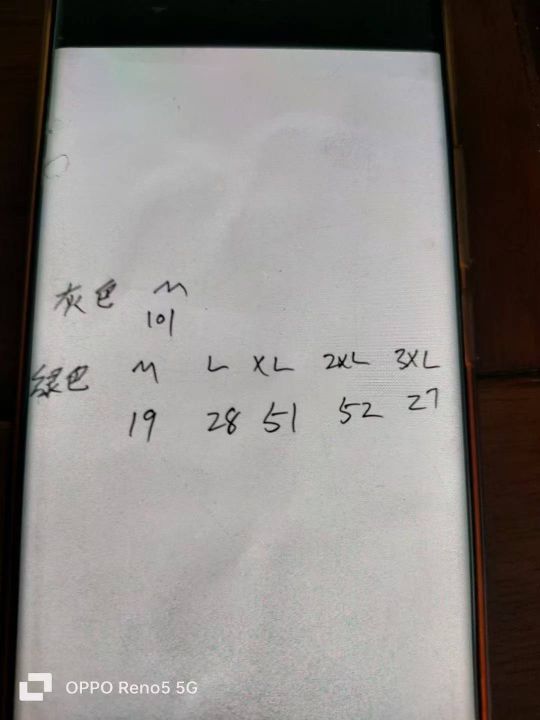 灰色 M
101
绿色 M L XL 2XL 3XL
19 28 51 52 27
OPPO Reno5 5G